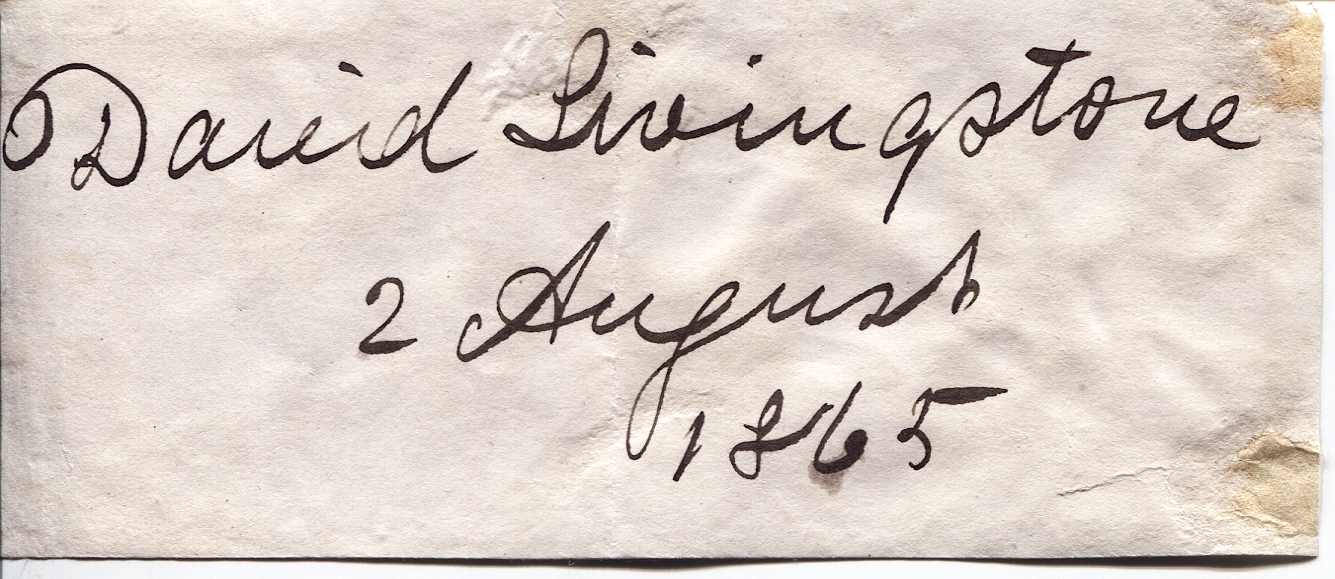 David Livingstone
2 August
1865